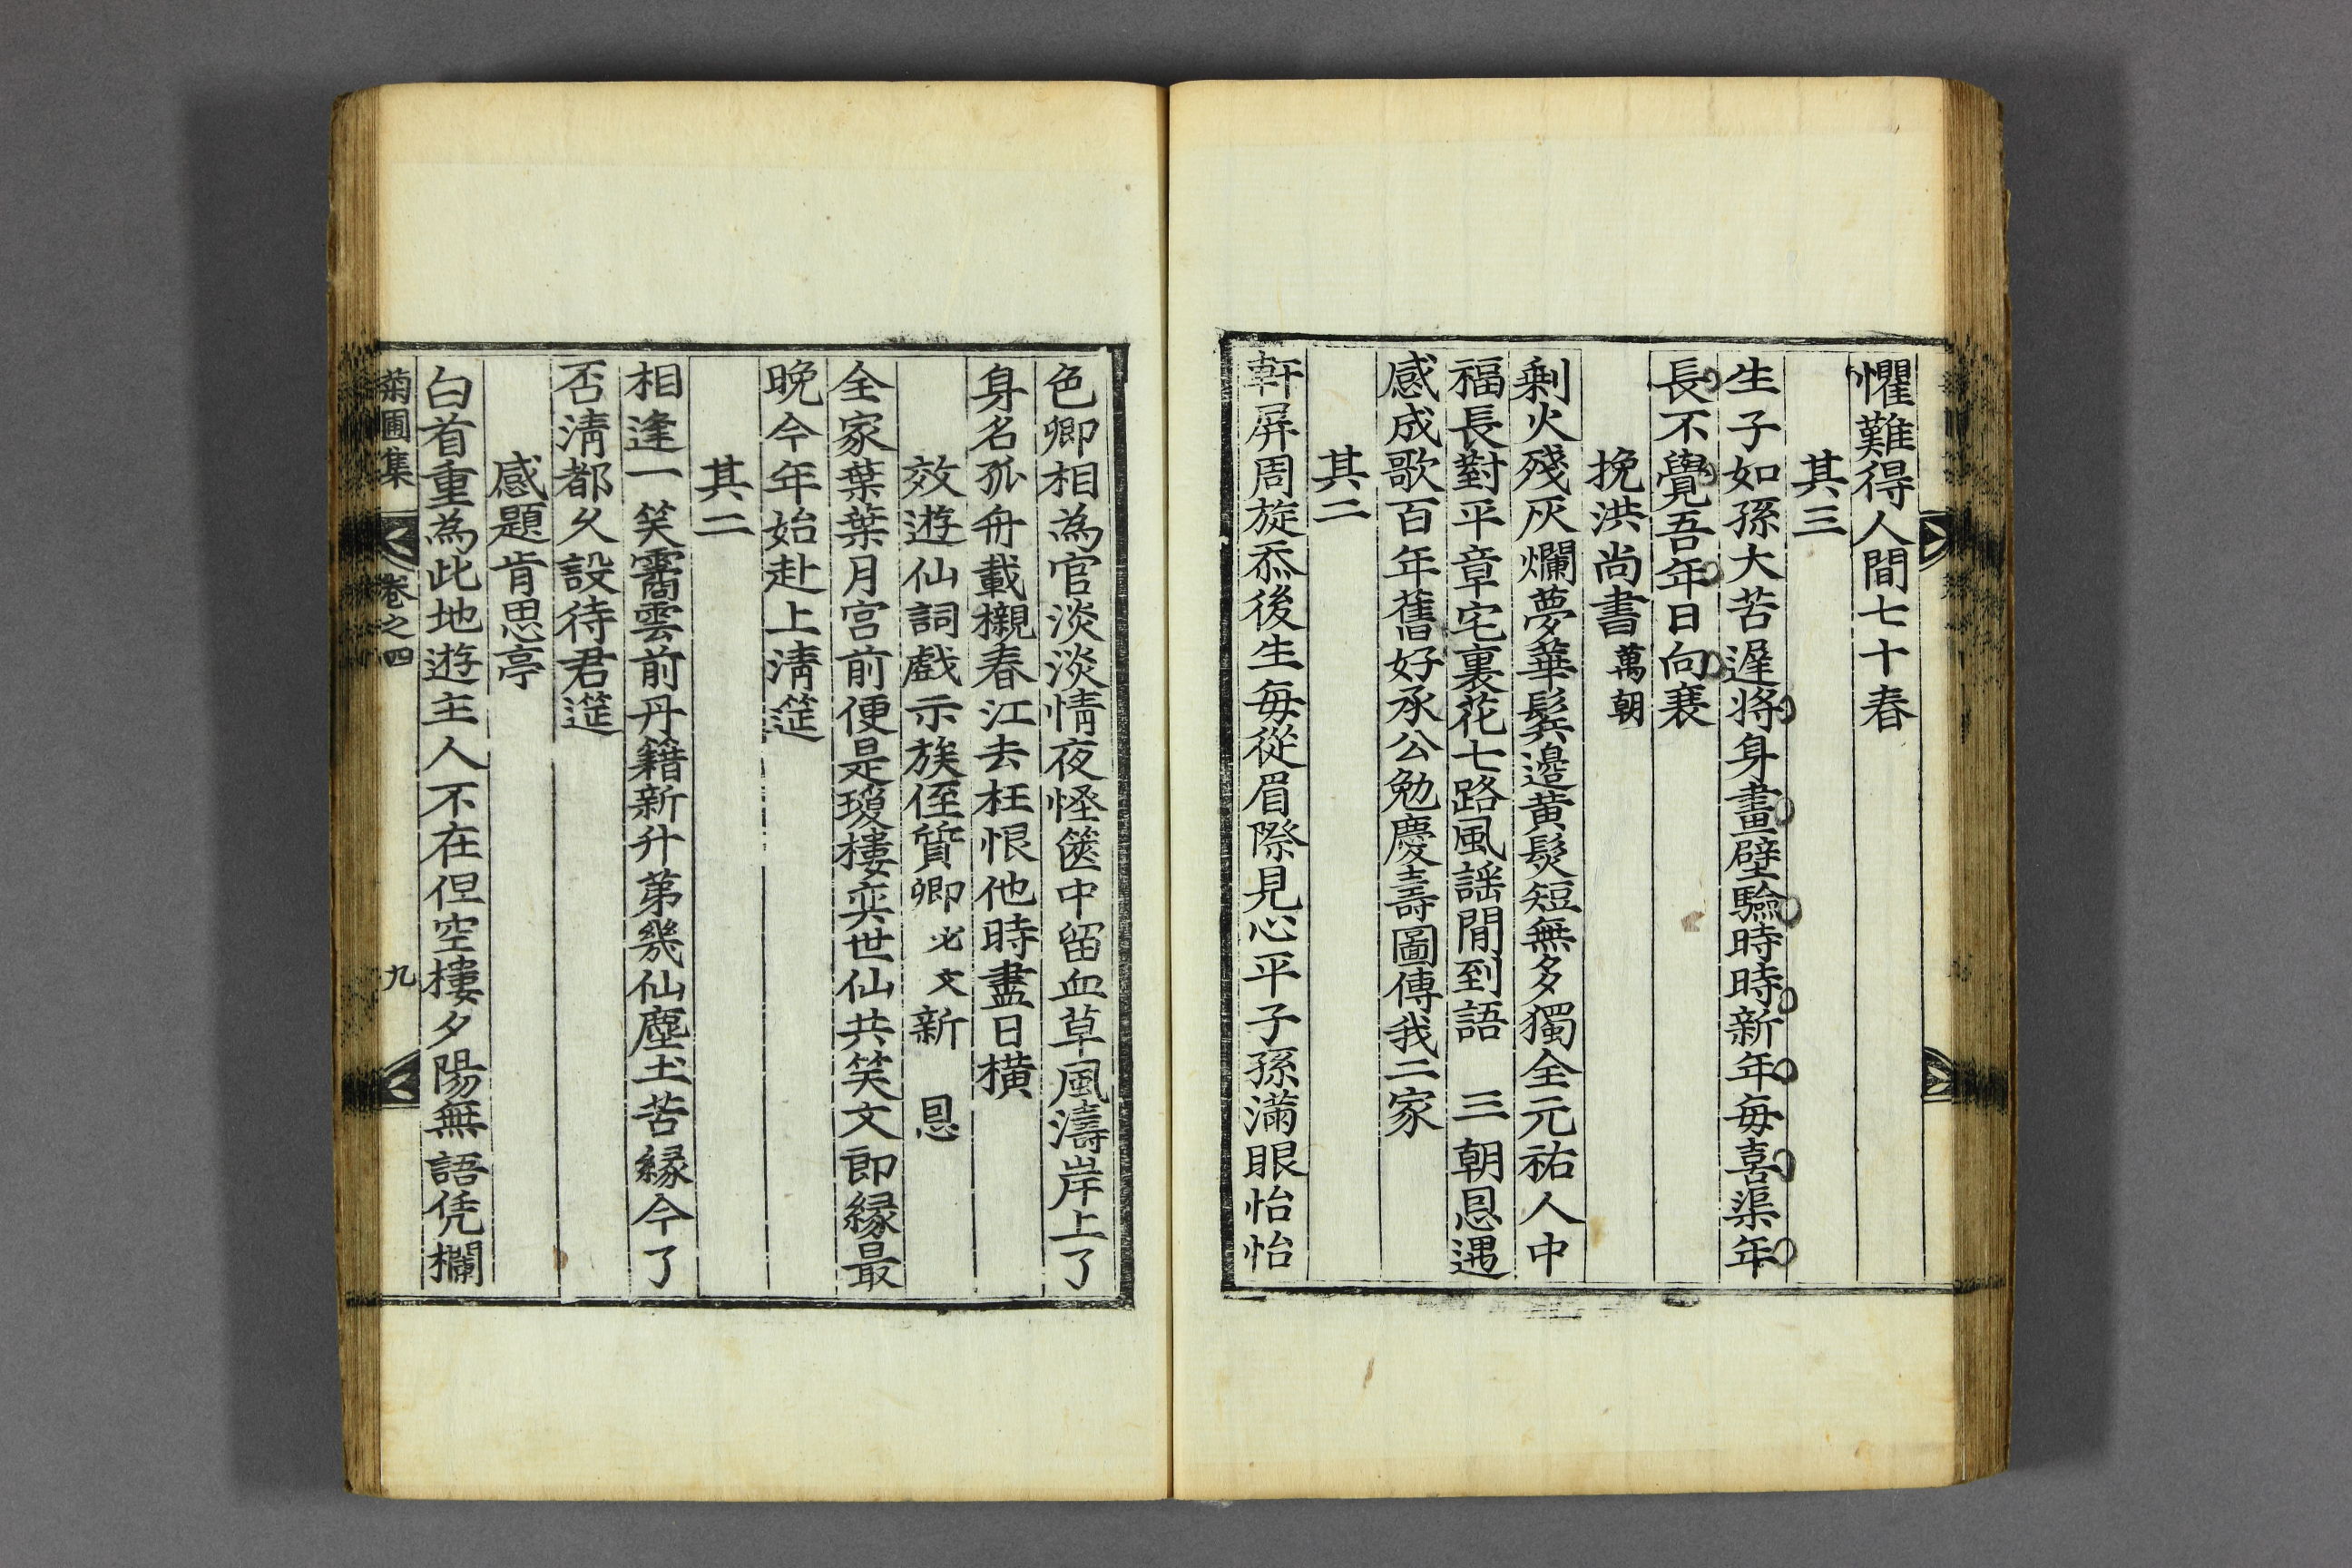 懼難得人間七十春
其三
生子如孫大苦遲將身畫壁驗時時新年每喜渠年
長不覺吾年日向衰
挽洪尚書萬朝
剩火殘灰爛夢華鬂邊黃髮短無多獨全元祐人中
福長對平章宅裏花七路風謠閒到語 三朝恩遇
感成歌百年舊好承公勉慶壽圖傳我二家
其二
軒屏周旋忝後生每從眉際見心平子孫滿眼怡怡
色卿相為官淡淡情夜怪篋中留血草風濤岸上了
身名孤舟載櫬春江去枉恨他時盡日橫
效遊仙詞戲示族侄質卿必文新 恩
全家葉葉月宮前便是瓊樓奕世仙共笑文郎緣最
晚今年始赴上淸筵
其二
相逢一笑霱雲前丹籍新升第幾仙塵土苦緣今了
否淸都久設待君筵
感題肯思亭
白首重為此地遊主人不在但空樓夕陽無語凭欄
菊圃集 卷之四 九